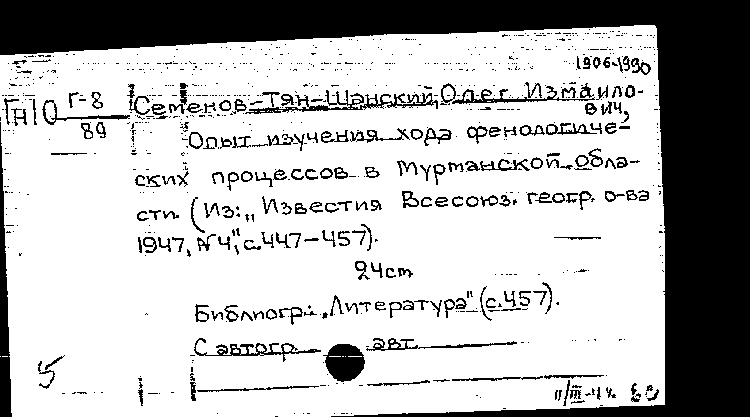 1906-1990
[ГН] О Г-8/89 Семенов-Тян-Шанский, Олег Измаило-
вич,
Опыт изучения хода фенологиче-
ских процессов в Мурманской обла-
сти. (Из: „Известия Всесоюз. геогр. о-ва
1947, №4," с.447-457).
24cm
Библиогр.: „Литература" (с.457).
С автогр. авт.